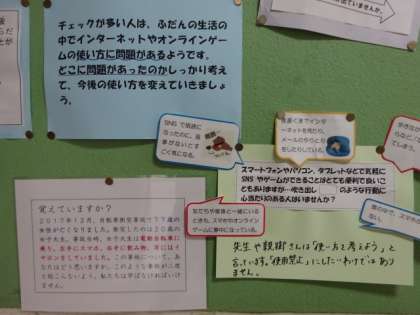 チェックが多い人は、ふだんの生活の
中でインターネットやオンラインゲー
ムの使い方に問題があるようです。
どこに問題があったのかしっかり考え
て、今後の使い方を変えていきましょ
う。
SNS で
になったのに、返
事がないとす
ごく気になる。
夜遅くまでインター
ネットを見たり、
メールのやりとり
をしたりしている。
スマートフォンやパソコン、タブレットなどで気軽に
SNS やゲームができることはとても便利で良いこ
ともありますが…吹き出し のような行動に
心当たりのある人はいませんか?
友だちや家族と一緒にいる
ときも、スマホやオンライン
ゲームに夢中になっている。
先生や親御さんは「使い方を考えよう」と
言っています。「使用禁止」にしたいわけではあ
りません。
覚えていますか?
2017年12月、自転車衝突事故で77歳の
女性が亡くなりました。衝突したのは20歳の
女子大生。事故当時、女子大生は電動自転車に
乗り、左手にスマホ、右手に飲み物、耳にはイ
ヤホンをしていました。この事故について、あ
なたはどう思いますか。このような事故が二度
と起こらないよう、私たちは学ばなければいけ
ません。